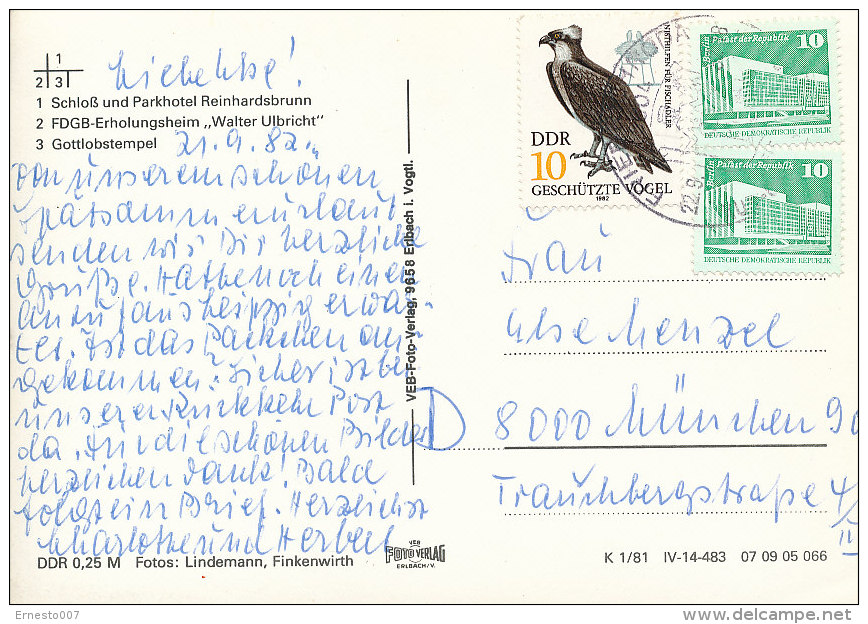 1
2 3
Liebe Else!
1 Schloß und Parkhotel Reinhardsbrunn
2 FDGB-Erholungsheim „Walter Ulbricht"
3 Gottlobstempel
21.9.82.
Von unserem schönen
senden wir Dir herzliche
Grüße. Hatte noch einen
Anruf aus Leipzig erwar-
tet. Ist das Päckchen an-
gekommen? Sicher ist bei
unserer Rückkehr Post
da. Für die schönen Bilder
herzlichen Dank! Bald
folgt ein Brief. Herzlichst
Charlotte und Herbert
DDR 0,25 M Fotos: Lindemann, Finkenwirth
VEB-Foto-Verlag, 9658 Erlbach i. Vogtl.
VEB
FOTO VERLAG
ERLBACH/V.
NISTHILFEN FÜR FISCHADLER
DDR
10
GESCHÜTZTE VÖGEL
1982
Berlin Palast der Republik 10
DEUTSCHE DEMOKRATISCHE REPUBLIK
Berlin Palast der Republik 10
DEUTSCHE DEMOKRATISCHE REPUBLIK
22.9.
Frau
Else Menzel
D 8000 München 90
Trauchbergstraße 4/
II
K 1/81 IV-14-483 07 09 05 066
Ernesto007
delcampe.net